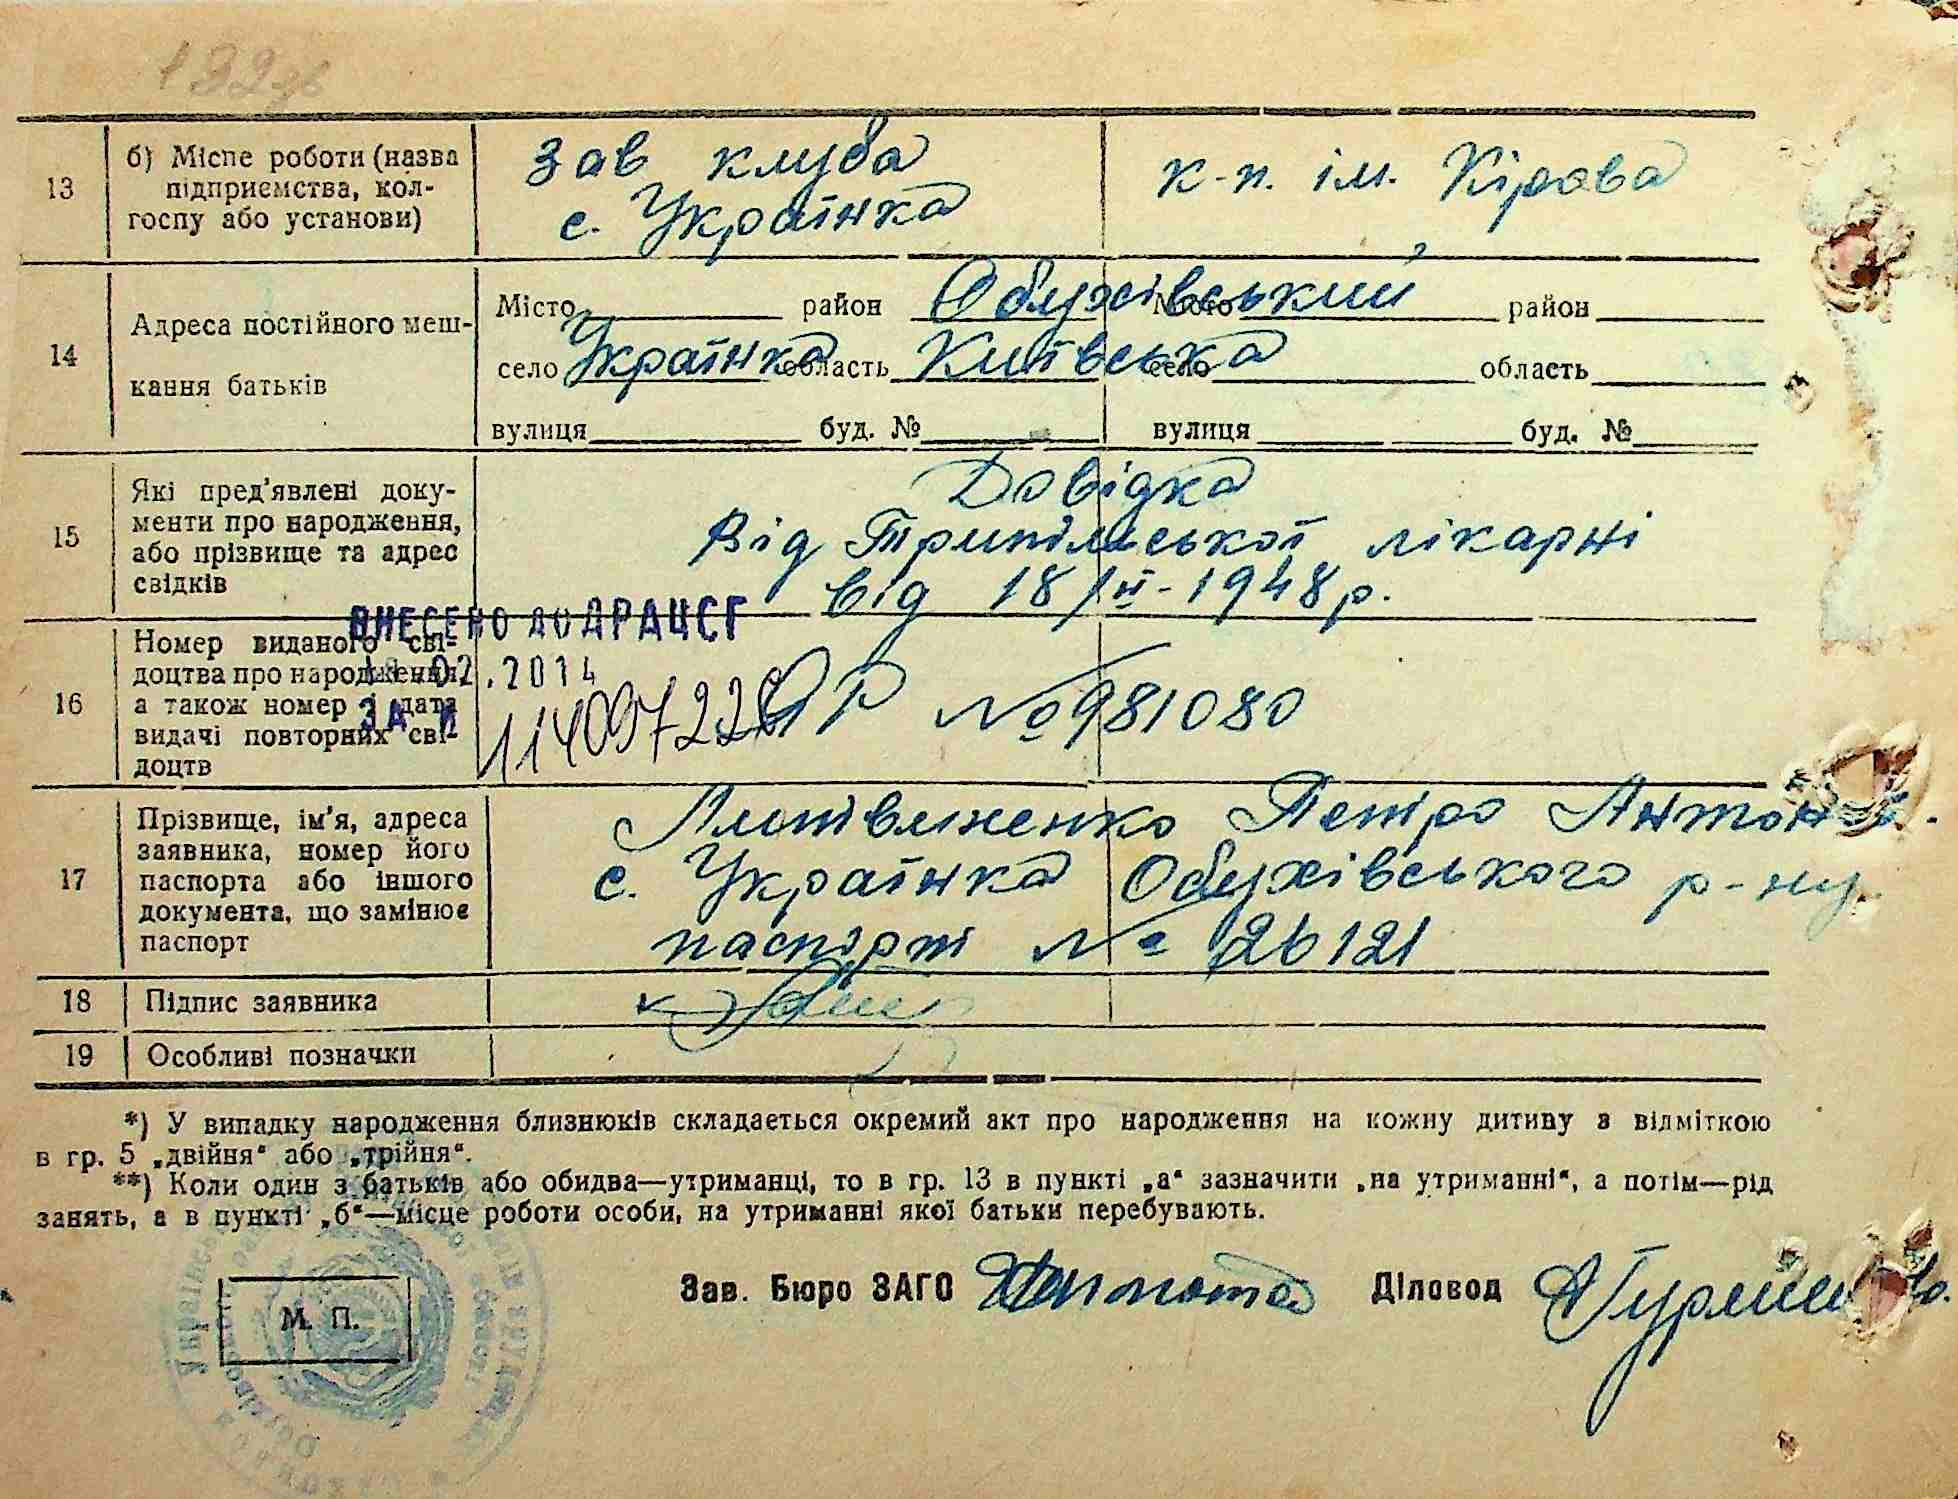 132зв
13 б) Місце роботи (назва підприємства, колгоспу або установи)
зав клуба
с. Українка
к-п. ім. Кірова
14 Адреса постійного мешкання батьків
Місто район Обухівський Місто район
село Українка область Київська село область
вулиця буд. № вулиця буд. №
15 Які пред'явлені документи про народження, або прізвище та адрес свідків
Довідка
Від Трипільської лікарні
від 18/ІІ-1948р.
ВНЕСЕНО ДО ДРАЦСГ
02.2014
ЗА №
16 Номер виданого свідоцтва про народження, а також номер і дата видачі повторних свідоцтв
ЯР №981080
17 Прізвище, ім'я, адреса заявника, номер його паспорта або іншого документа, що замінює паспорт
Петро Антон
с. Українка Обухівського р-ну
паспорт № 26121
18 Підпис заявника
19 Особливі позначки
*) У випадку народження близнюків складається окремий акт про народження на кожну дитину з відміткою
в гр. 5 „двійня“ або „трійня“.
**) Коли один з батьків або обидва—утриманці, то в гр. 13 в пункті „а“ зазначити „на утриманні“, а потім—рід
занять, а в пункті „б“—місце роботи особи, на утриманні якої батьки перебувають.
Зав. Бюро ЗАГС Діловод
М. П.